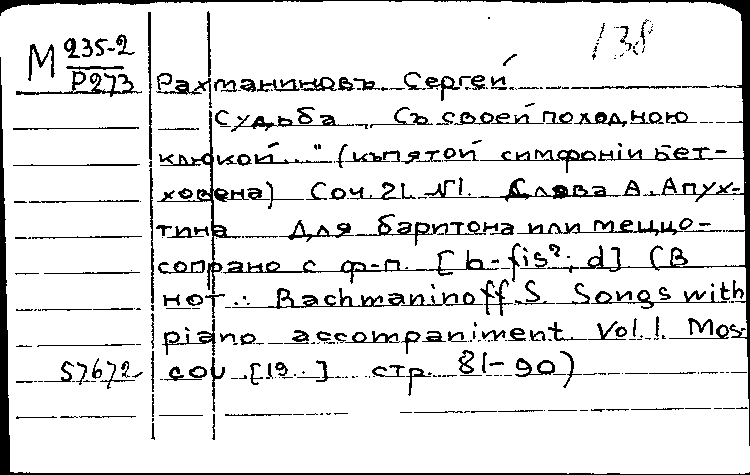 138
М 235-2
Р273
Рахманиновъ Сергей
Судьба „Съ своей походною
клюкой..." (къ пятой симфоніи Бет-
ховена) Соч. 21. №1. Слова А. Апух-
тина Для баритона или меццо-
сопрано с ф-п. [b-fis²; d] (В
нот.: Rachmaninoff. S. Songs with
piano accompaniment. Vol. 1. Mos-
57672 cou [19..] стр. 81-90)